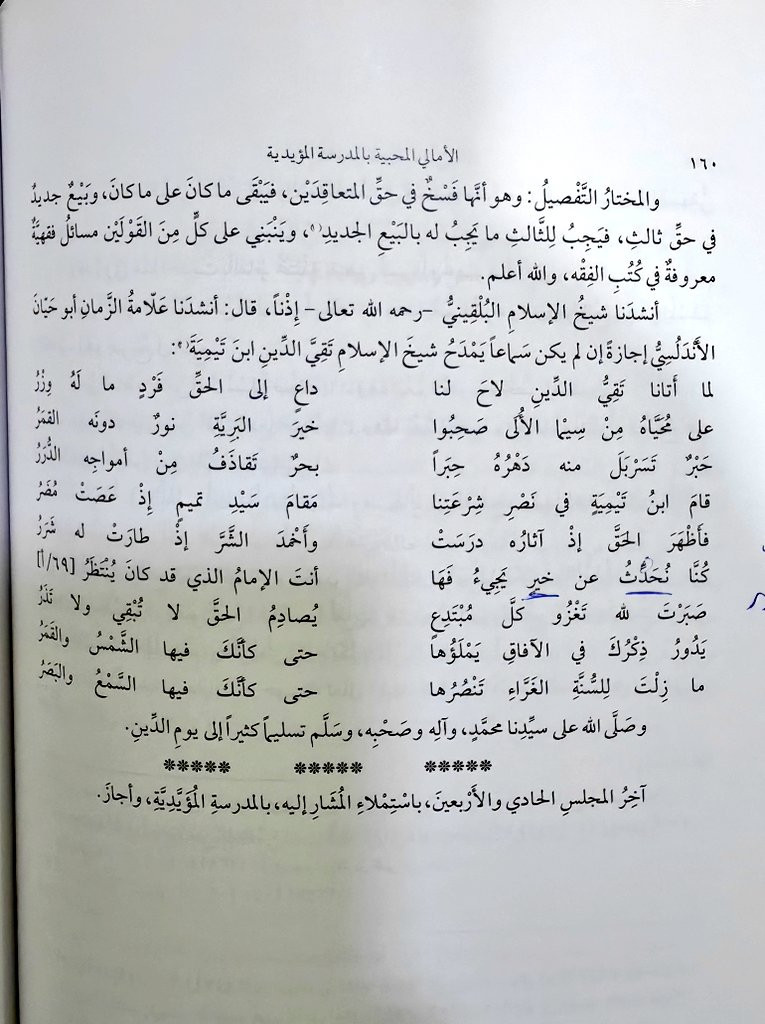 ١٦٠ الأمالي المحبية بالمدرسة المؤيدية
والمختارُ التَّفْصيلُ: وهو أنَّها فَسْخٌ في حقِّ المتعاقِدَيْن، فيَبْقَى ما كانَ على ما كانَ، وبَيْعٌ جديدٌ
في حقِّ ثالثٍ، فيَجِبُ لِلثَّالثِ ما يَجِبُ له بالبَيْعِ الجديدِ(١)، ويَنْبَنِي على كلٍّ مِنَ القَوْلَيْن مسائلُ فقهيَّةٌ
معروفةٌ في كُتُبِ الفِقْه، والله أعلم.
أنشدَنا شيخُ الإسلامِ البُلْقِينيُّ –رحمه الله تعالى– إذْناً، قال: أنشدَنا عَلّامةُ الزَّمانِ أبو حَيّانَ
الأَنْدَلُسِيُّ إجازةً إن لم يكن سَماعاً يَمْدَحُ شيخَ الإسلامِ تَقِيَّ الدِّينِ ابنَ تَيْمِيَةَ(٢):
لما أَتانا تَقِيُّ الدِّينِ لاحَ لنا داعٍ إلى الحَقِّ فَرْدٍ ما لَهُ وِزْرُ
على مُحَيَّاهُ مِنْ سِيْمَا الأُلَى صَحِبُوا خيرَ البَرِيَّةِ نورٌ دونَه القمَرُ
حَبْرٌ تَسَرْبَلَ منه دَهْرُهُ حِبَراً بحرٌ تَقاذَفُ مِنْ أمواجِه الدُّرَرُ
قامَ ابنُ تَيْمِيَةٍ في نَصْرِ شِرْعَتِنا مَقامَ سَيْدِ تميمٍ إذْ عَصَتْ مُضَرُ
فأَظْهَرَ الحَقَّ إذْ آثارُه درَسَتْ وأَخْمَدَ الشَّرَّ إذْ طارَتْ له شَرَرُ
كُنَّا نُحَدَّثُ عن خبرٍ يَجِيءُ فَهَا أنتَ الإمامُ الذي قد كانَ يُنْتَظَرُ [٦٩/أ]
صَبَرْتَ لله تَغْزُو كلَّ مُبْتَدِعٍ يُصادِمُ الحقَّ لا تُبْقِي ولا تَذَرُ
يَدُورُ ذِكْرُكَ في الآفاقِ يَمْلَؤُها حتى كأنَّكَ فيها الشَّمْسُ والقَمَرُ
ما زِلْتَ لِلسُّنَّةِ الغَرَّاءِ تَنْصُرُها حتى كأنَّكَ فيها السَّمْعُ والبَصَرُ
وصَلَّى الله على سيِّدِنا محمَّدٍ، وآلِه وصَحْبِه، وسَلَّم تسليماً كثيراً إلى يومِ الدِّينِ.
***** ***** *****
آخِرُ المجلسِ الحادي والأَرْبعينَ، باسْتِمْلاءِ المُشارِ إليه، بالمدرسةِ المُؤَيَّدِيَّةِ، وأجازَ.